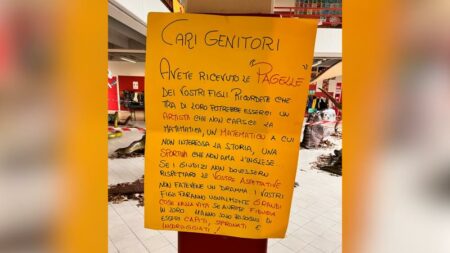 CARI GENITORI
AVETE RICEVUTO LE "PAGELLE"
DEI VOSTRI FIGLI RICORDATE CHE
TRA DI LORO POTREBBE ESSERCI UN
ARTISTA CHE NON CAPISCE LA
MATEMATICA, UN MATEMATICO A CUI
NON INTERESSA LA STORIA, UNA
SPORTIVA CHE NON AMA L'INGLESE
SE I GIUDIZI NON DOVESSERO
RISPETTARE LE VOSTRE ASPETTATIVE
NON FATEVENE UN DRAMMA I VOSTRI
FIGLI FARANNO UGUALMENTE GRANDI
COSE NELLA VITA SE AVRETE FIDUCIA
IN LORO HANNO SOLO BISOGNO DI
ESSERE CAPITI, SPRONATI E
INCORAGGIATI!